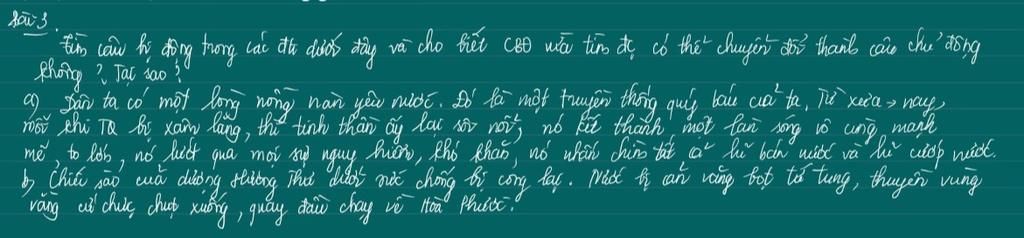 Bài 3.
Tìm câu bị động trong các đtr dưới đây và cho biết CBĐ vừa tìm đc có thể chuyển đổi thành câu chủ động
không? Tại sao?
a) Dân ta có một lòng nồng nàn yêu nước. Đó là một truyền thống quý báu của ta. Từ xưa → nay,
mỗi khi TQ bị xâm lăng, thì tinh thần ấy lại sôi nổi, nó kết thành một làn sóng vô cùng mạnh
mẽ, to lớn, nó lướt qua mọi sự nguy hiểm, khó khăn, nó nhấn chìm tất cả lũ bán nước và lũ cướp nước.
b) Chiếc sào của dượng Hương Thư dưới nước chống bị cong lại. Nước bị cản văng bọt tứ tung, thuyền vùng
vằng cứ chực chụt xuống, quay đầu chạy về Hoà Phước.